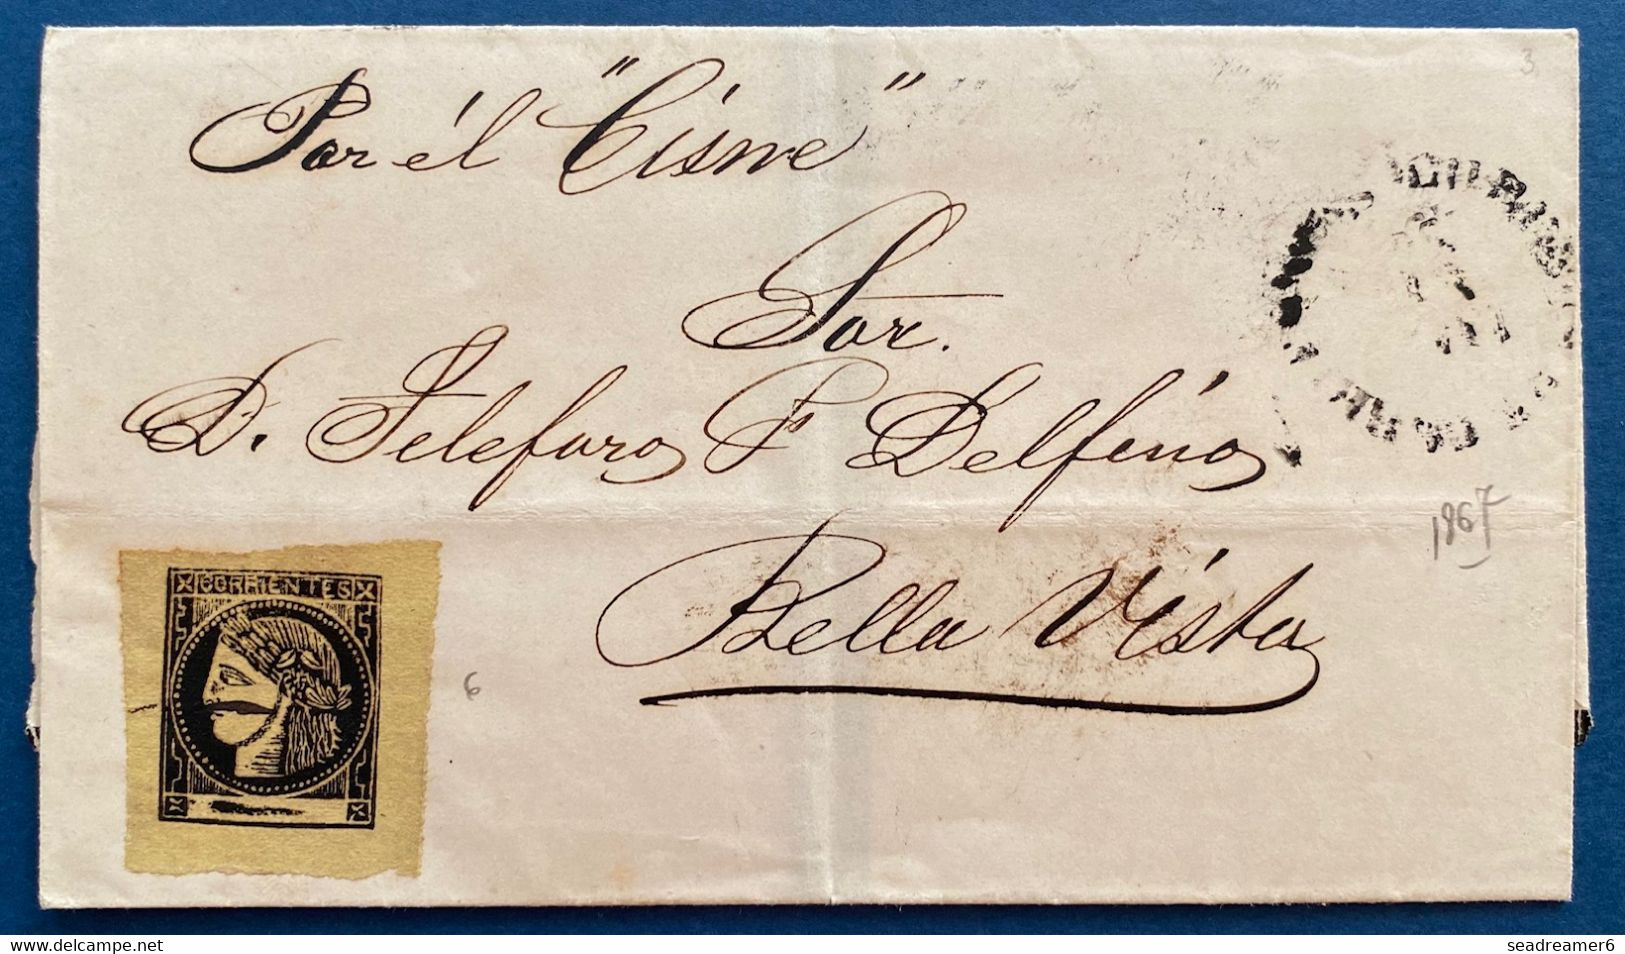 3
Por él "Cisne"
Sor.
D. Telefaro F Delfino
1867
Bella Vista
CORRIENTES
6
delcampe.net
seadreamer6